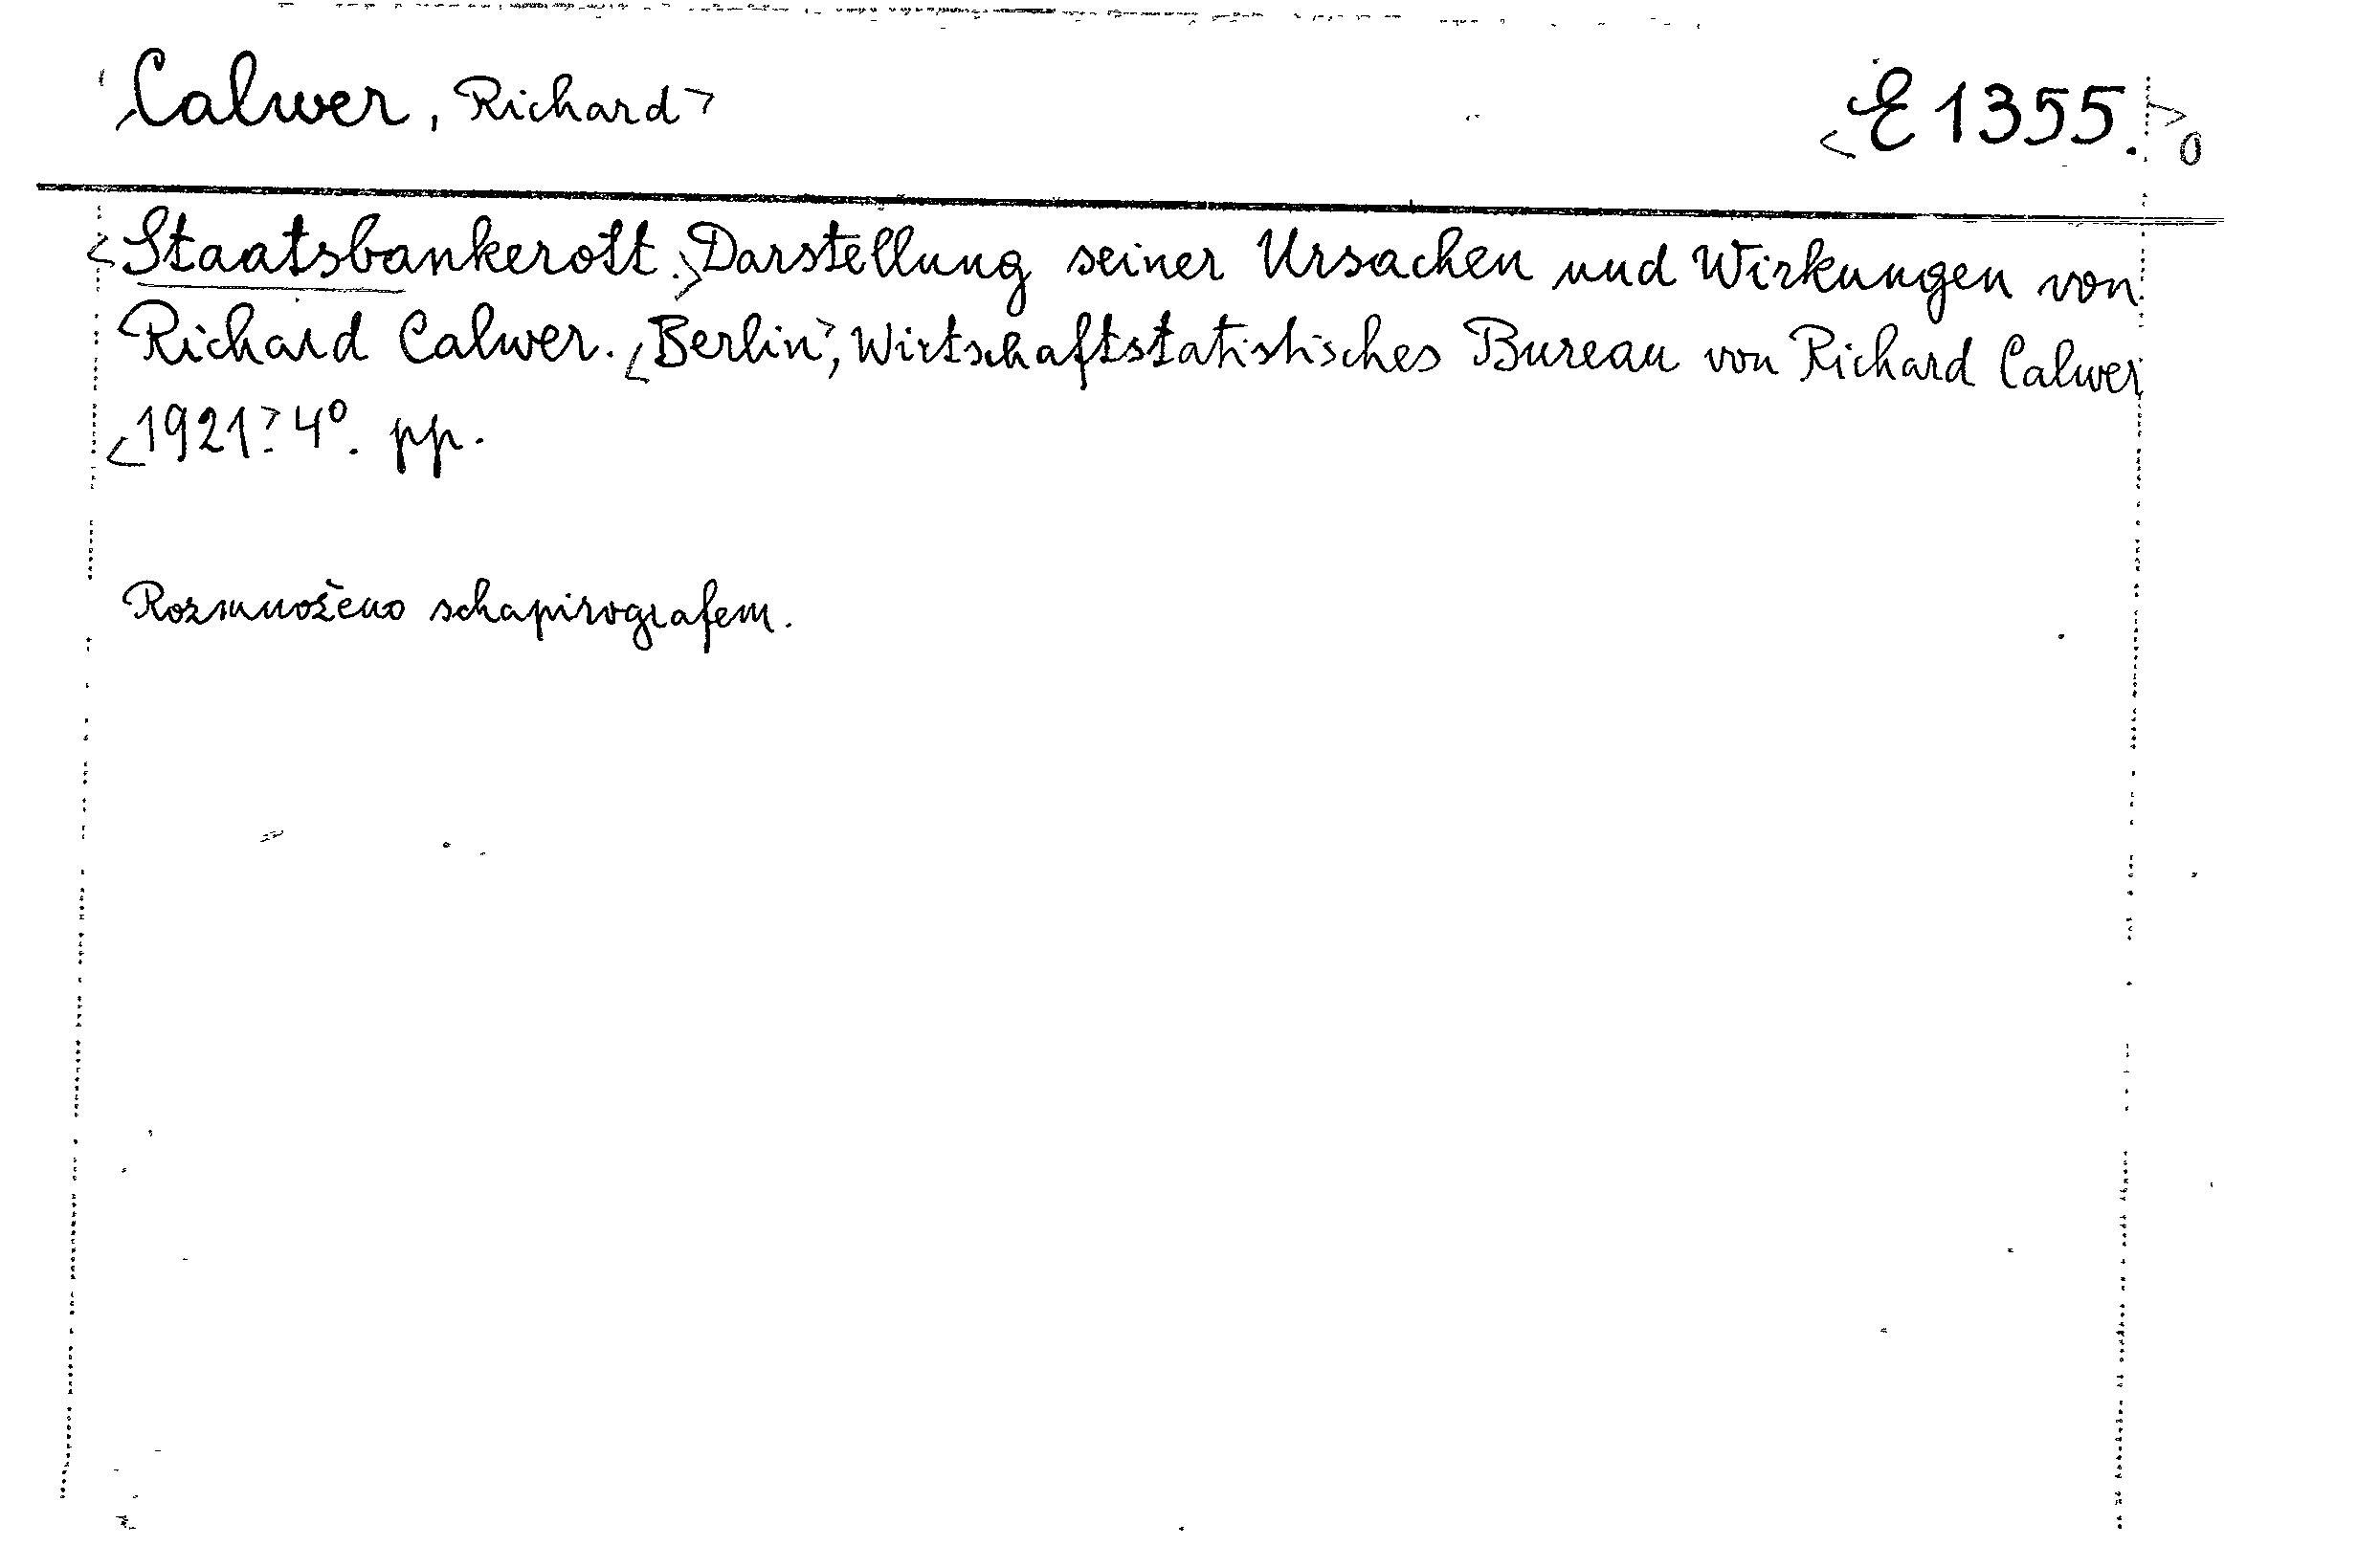 Calwer, Richard> <E 1355.>0
<Staatsbankerott.> Darstellung seiner Ursachen und Wirkungen von
Richard Calwer. <Berlin>, Wirtschaftstatistisches Bureau von Richard Calwer
<1921>. 4°. pp.
Rozmnoženo schapirografem.